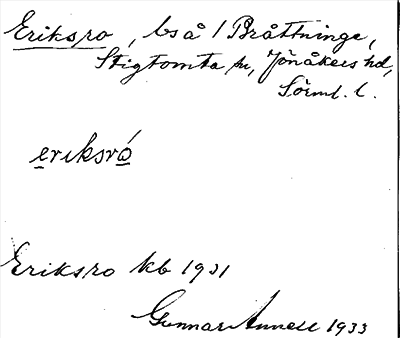 Eriksro, bs å 1 Bråttninge,
Stigtomta sn, Jönåkers hd,
Sörml. l.
eriksró
Eriksro kb 1931
Gunnar Annell 1933